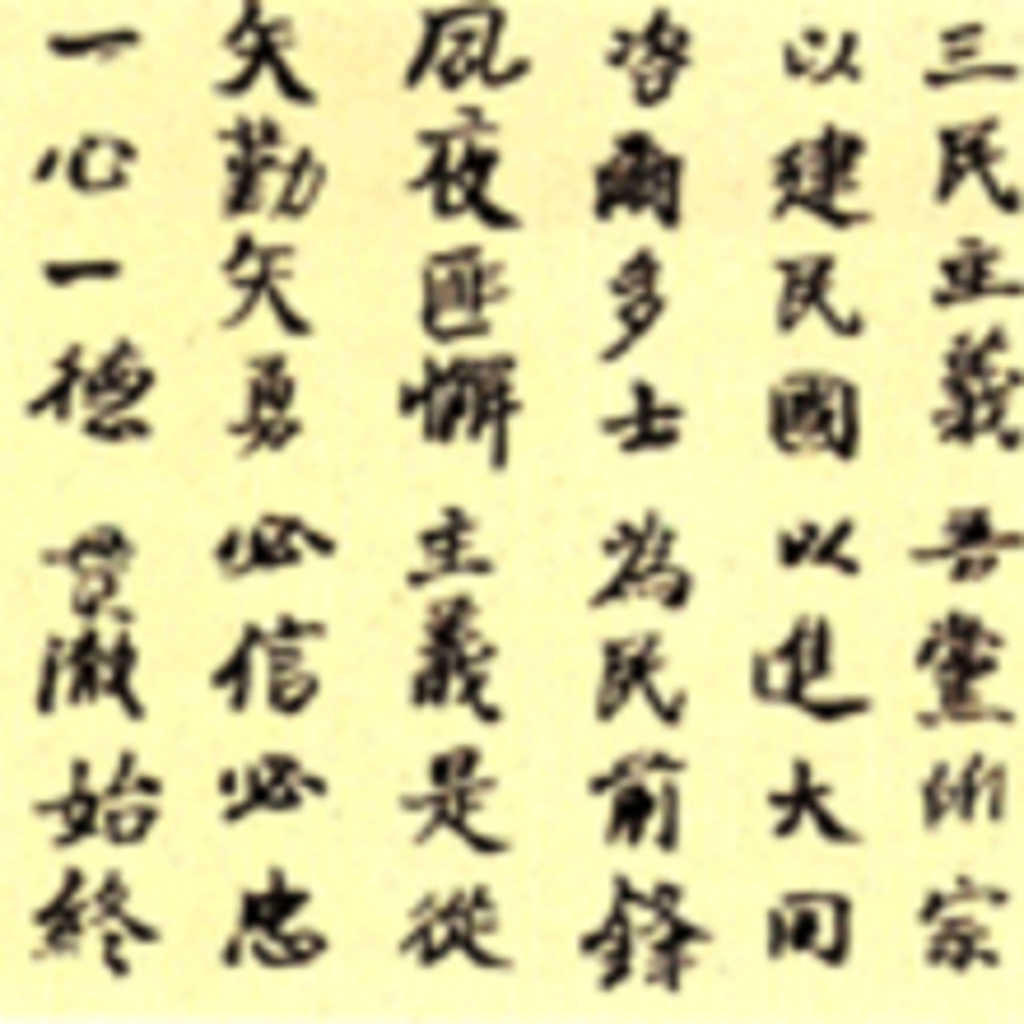 三民主義吾黨所宗
以建民國以進大同
咨爾多士為民前鋒
夙夜匪懈主義是從
矢勤矢勇必信必忠
一心一德貫澈始終